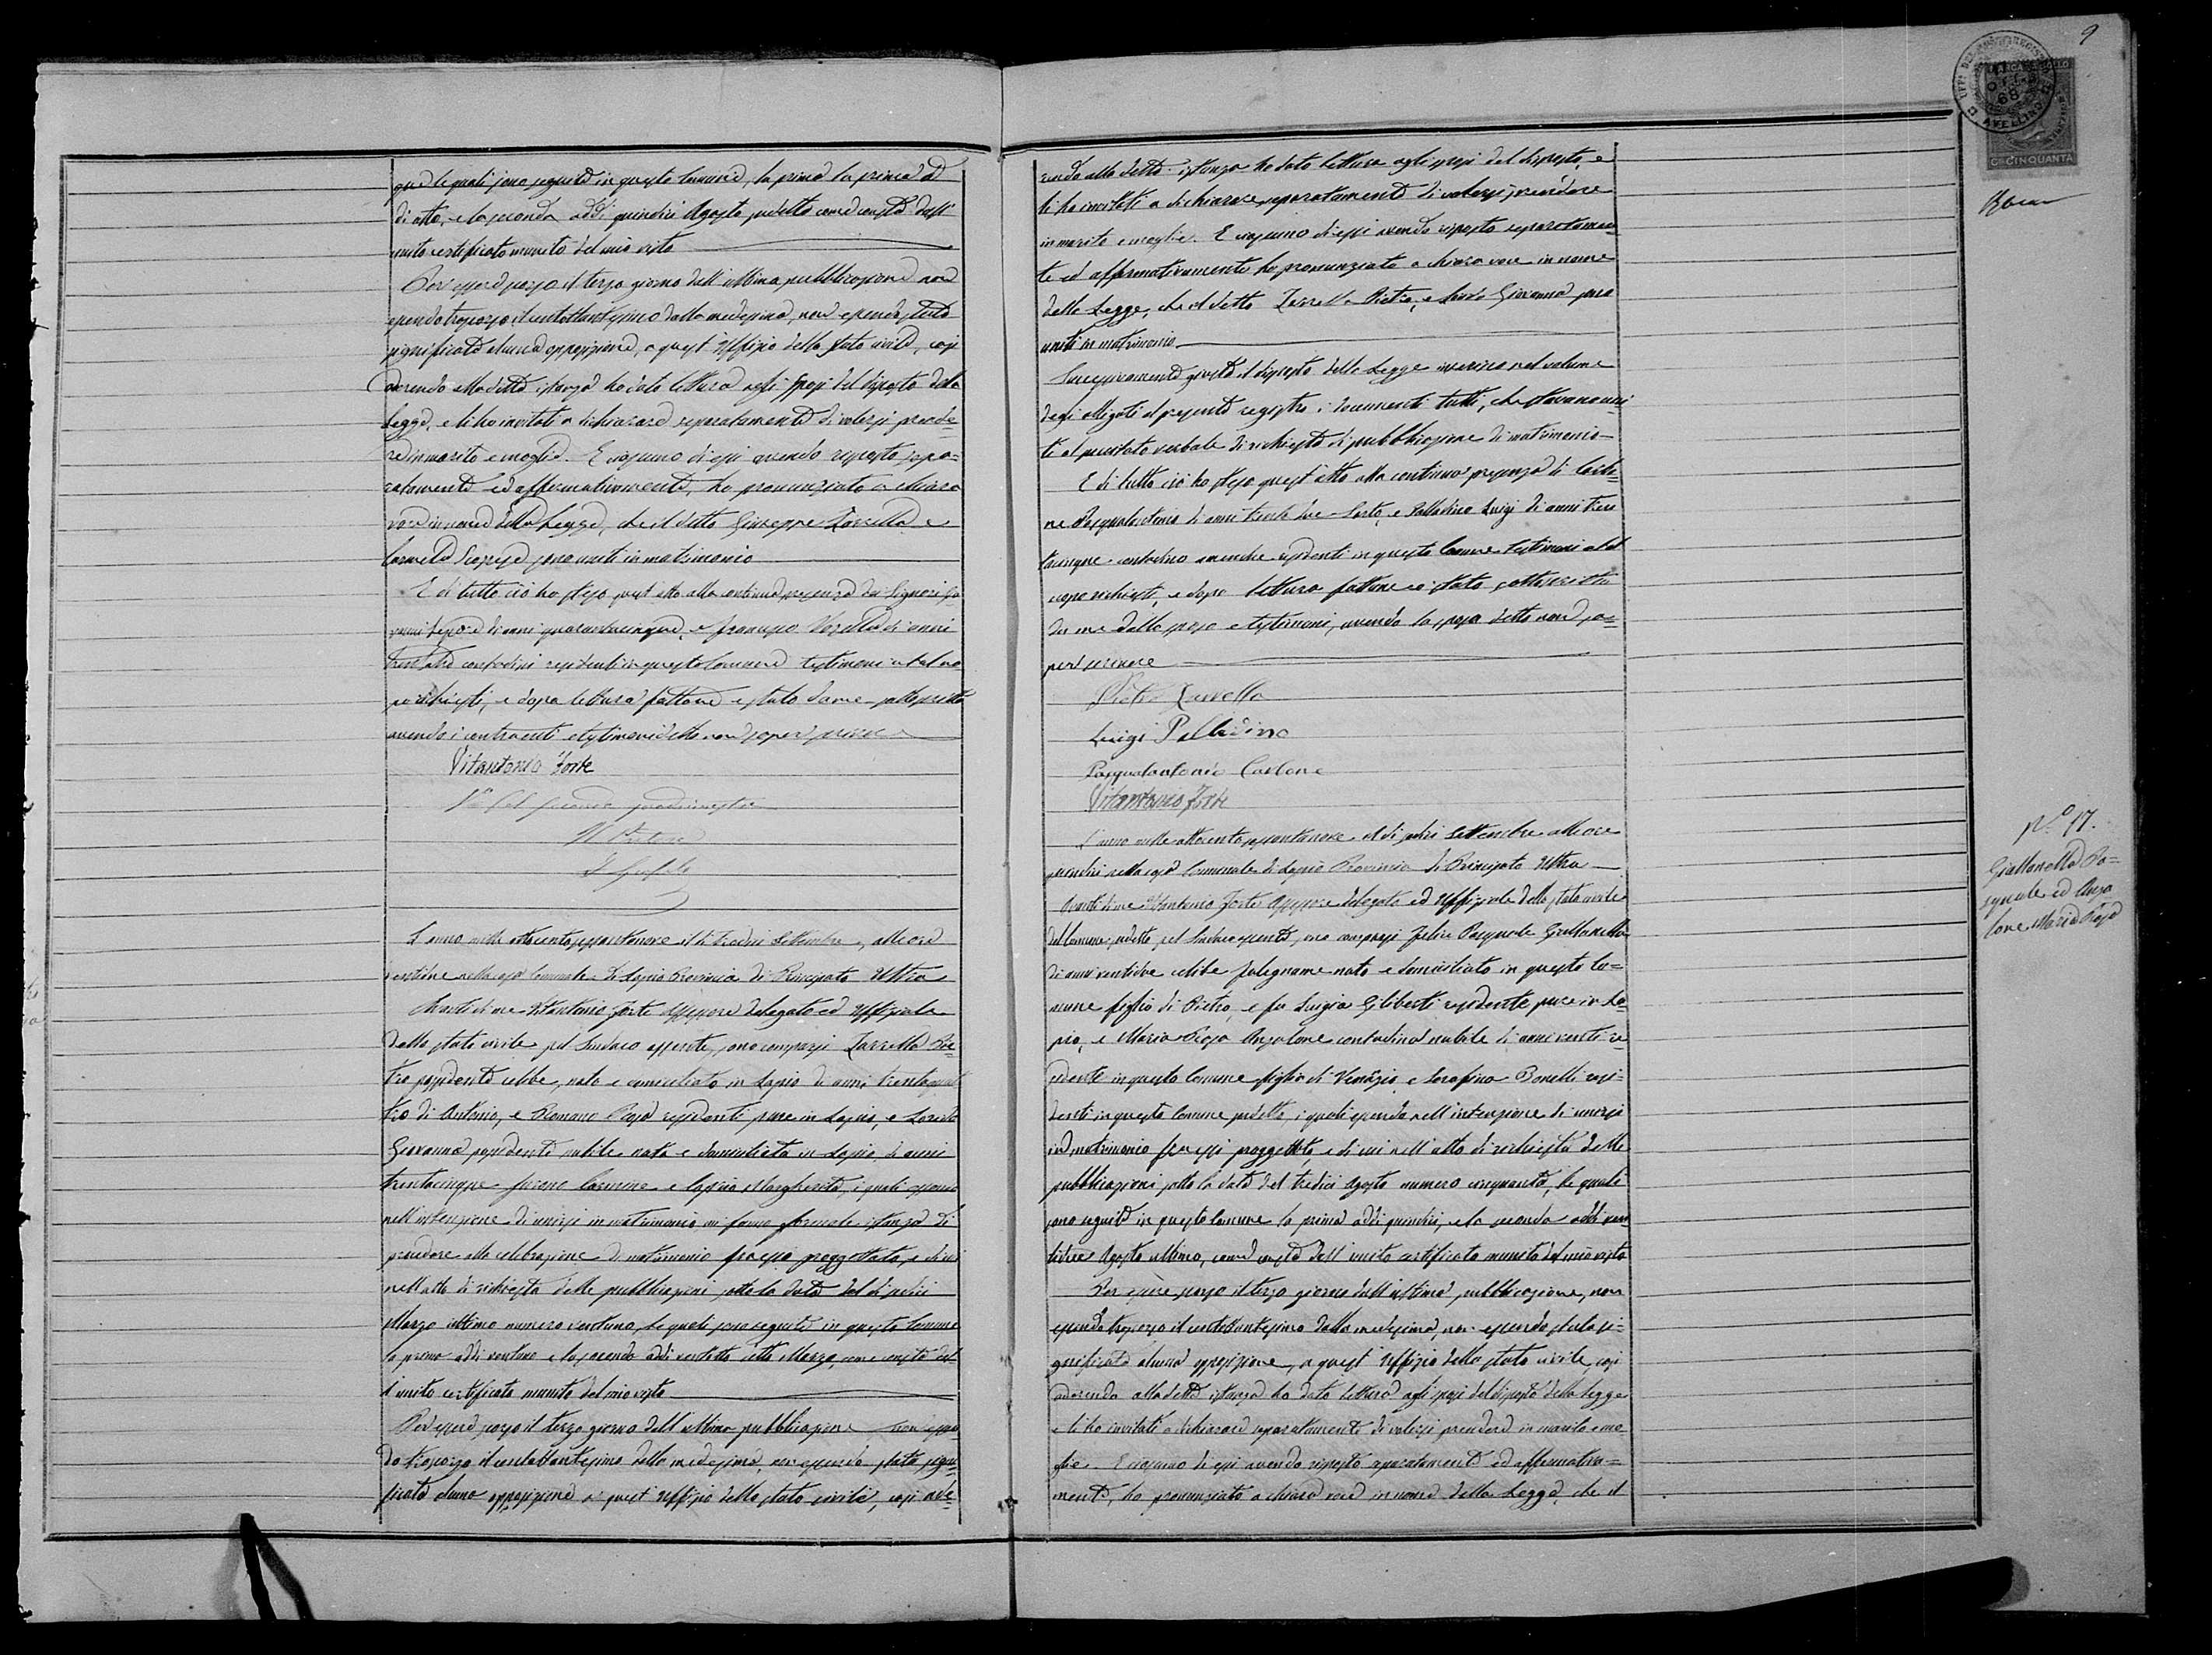 que le quali sono seguite in questo Comune, la prima la prima ad
di otto, e la seconda addì quindici Agosto predetto come consta dall'
unito certificato munito del mio visto
Per essere scorso il terzo giorno dell'ultima pubblicazione non
essendo trascorso il centottantesimo dalla medesima, non essendo stata
significata alcuna opposizione, a quest'Uffizio dello stato civile, così
aderendo alla detta istanza ho dato lettura agli sposi del disposto della
Legge, e li ho invitati a dichiarare separatamente di volersi prende=
re in marito e moglie. E ciascuno di essi avendo risposto sepa=
ratamente ed affermativamente, ho pronunziato a chiara
voce in nome della Legge, che il detto Giuseppe Zarrella e
Carmela Scopise sono uniti in matrimonio
E di tutto ciò ho steso quest'atto alla continua presenza dei Signori Gio=
vanni di anni quarantacinque, e Francesco di anni
contadini residenti in questo Comune testimoni a tal uo=
po richiesti, e dopo lettura fattane è stato da me sottoscritto
avendo i contraenti e testimoni detto non saper scrivere
Vitantonio Forte
Vo pel secondo quadrimestre
Il Pretore
L'anno mille ottocento sessantanove il dì tredici Settembre, alle ore
venti nella casa Comunale di Lapio Provincia di Principato Ultra
Avanti di me Vitantonio Forte Assessore delegato ed Uffiziale
dello stato civile pel Sindaco assente, sono comparsi Zarrella Pie=
tro possidente celibe, nato e domiciliato in Lapio di anni trentaquat
tro di Antonio, e Romano Rosa residenti pure in Lapio, e
Giovanna possidente nubile nata e domiciliata in Lapio di anni
trentacinque furono Carmine e Margherita, i quali essendo
nell'intenzione di unirsi in matrimonio mi fanno formale istanza di
procedere alla celebrazione di matrimonio fra essi proggettato, e di cui
nell'atto di richiesta delle pubblicazioni sotto la data del dì sedici
Marzo ultimo numero ventuno, le quali sono seguite in questo Comune
la prima addì ventuno e la seconda addì ventotto detto Marzo, come consta dal=
l'unito certificato munito del mio visto
Per essere scorso il terzo giorno dell'ultima pubblicazione non essen=
do trascorso il centottantesimo dalla medesima, non essendo stata signi=
ficata alcuna opposizione a quest'Uffizio dello stato civile, così ade=
9
C. CINQUANTA
AVELLINO
rendo alla detta istanza ho dato lettura agli sposi del disposto, e
li ho invitati a dichiarare separatamente di volersi prendere
in marito e moglie. E ciascuno di essi avendo risposto separatamen=
te ed affermativamente ho pronunziato a chiara voce in nome
della Legge, che il detto Zarrella Pietro, e Giovanna sono
uniti in matrimonio
Successivamente giusta il disposto della Legge inserisco nel volume
degli allegati al presente registro i documenti tutti, che stavano uni
ti al precitato verbale di richiesta di pubblicazione di matrimonio
E di tutto ciò ho steso quest'atto alla continua presenza di Carbo=
ne Pasqualantonio di anni trenta due Sarto, e Palladino Luigi di anni tren
tacinque contadino amendue residenti in questo Comune testimoni a tal
uopo richiesti, e dopo lettura fattane è stato sottoscritto
da me dallo sposo e testimoni, avendo la sposa detto non sa=
per scrivere
Pietro Zarrella
Luigi Palladino
Pasqualantonio Carbone
Vitantonio Forte
L'anno mille ottocento sessantanove il dì sedici Settembre alle ore
quindici nella casa Comunale di Lapio Provincia di Principato Ultra
Avanti di me Vitantonio Forte Assessore delegato ed Uffiziale dello stato civile
del Comune predetto, pel Sindaco assente, sono comparsi Felice Pasquale Giallonella
di anni ventidue celibe falegname nato e domiciliato in questo Co=
mune figlio di Pietro, e fu Luigia Giliberti residente pure in La=
pio, e Maria Rosa Anzalone contadina nubile di anni venti re
sidente in questo Comune figlia di Venazio e Serafina Bonelli resi=
denti in questo Comune predetto, i quali essendo nell'intenzione di unirsi
in matrimonio fra essi proggettato, e di cui nell'atto di richiesta delle
pubblicazioni sotto la data del tredici Agosto numero cinquanta, le quali
sono seguite in questo Comune la prima addì quindici, e la seconda addì ven
tidue Agosto ultimo, come consta dall'unito certificato munito del mio visto
Per essere scorso il terzo giorno dall'ultima pubblicazione, non
essendo trascorso il centottantesimo dalla medesima, non essendo stata si=
gnificata alcuna opposizione, a quest'Uffizio dello stato civile, così
aderendo alla detta istanza ho dato lettura agli sposi del disposto della Legge
e li ho invitati a dichiarare separatamente di volersi prendere in marito e mo=
glie. E ciascuno di essi avendo risposto separatamente ed affermativa=
mente, ho pronunziato a chiara voce in nome della Legge, che il
No 17.
Giallonella Pa=
squale ed Anza
lone Maria Rosa